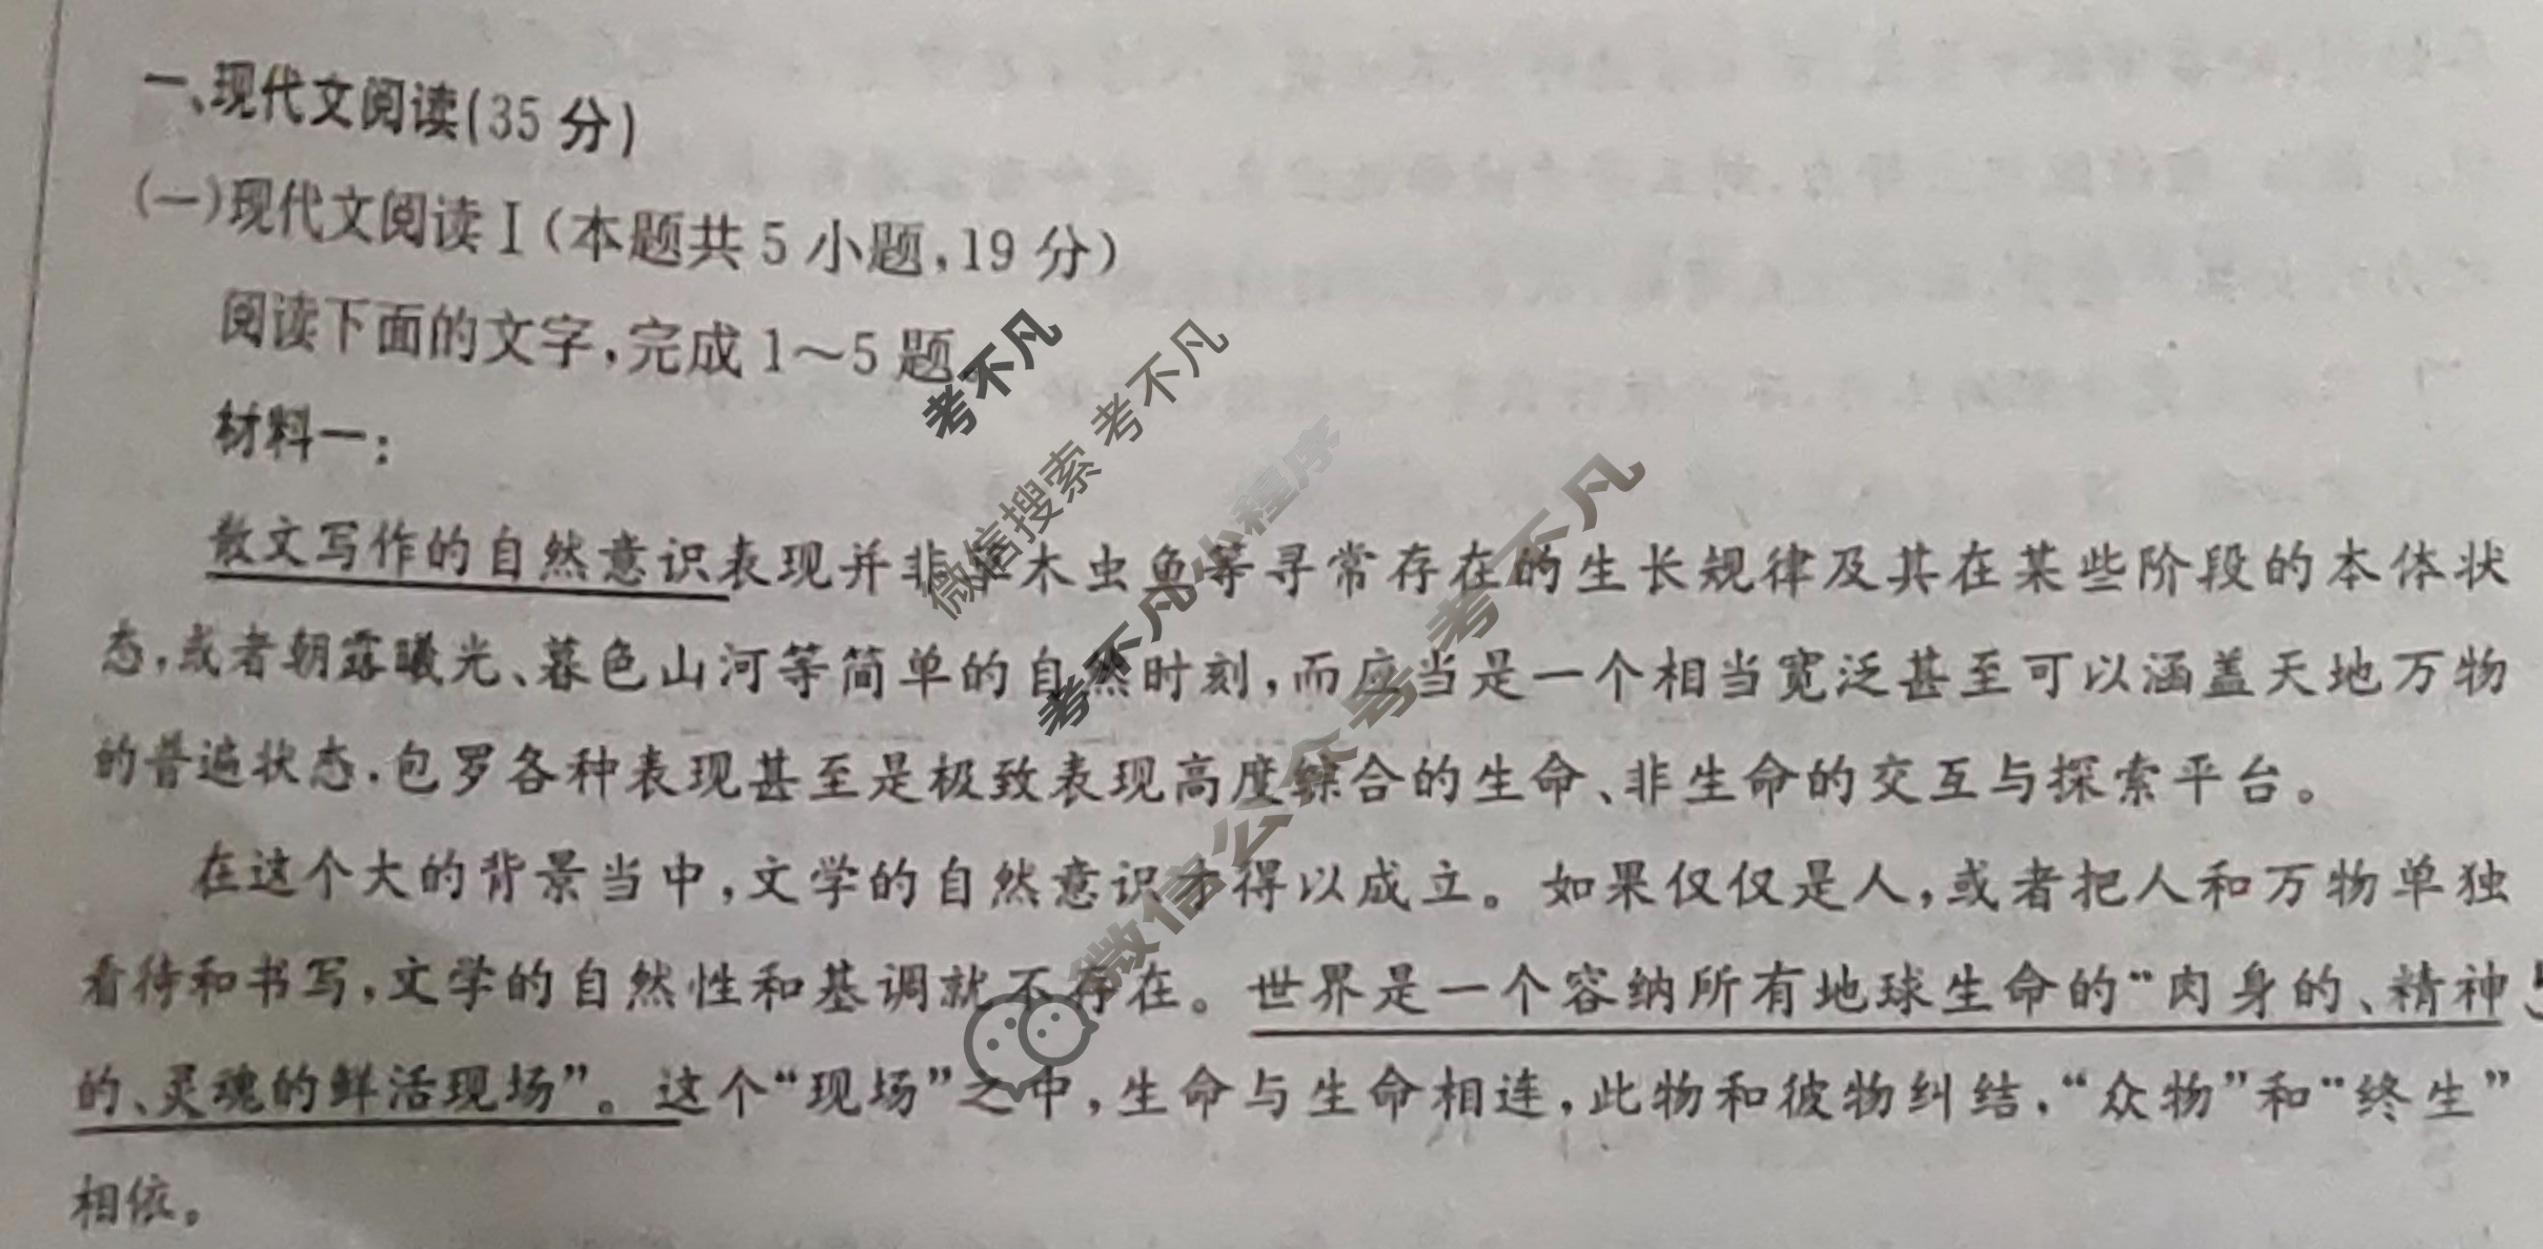 一、现代文阅读(35 分)
(一)现代文阅读 I (本题共 5 小题,19 分)
阅读下面的文字,完成 1～5 题。
材料一:
散文写作的自然意识表现并非草木虫鱼等寻常存在的生长规律及其在某些阶段的本体状
态,或者朝露曦光、暮色山河等简单的自然时刻,而应当是一个相当宽泛甚至可以涵盖天地万物
的普遍状态,包罗各种表现甚至是极致表现高度综合的生命、非生命的交互与探索平台。
在这个大的背景当中,文学的自然意识才得以成立。如果仅仅是人,或者把人和万物单独
看待和书写,文学的自然性和基调就不存在。世界是一个容纳所有地球生命的“肉身的、精神
的、灵魂的鲜活现场”。这个“现场”之中,生命与生命相连,此物和彼物纠结,“众物”和“终生”
相依。
考不凡
微信搜索 考不凡
考不凡小程序
微信公众号 考不凡